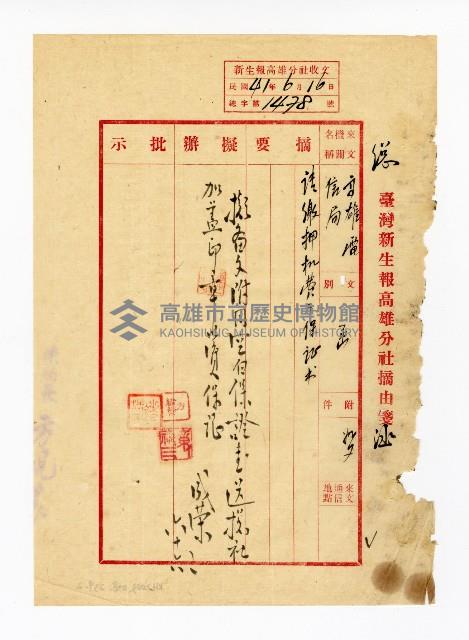 新生報高雄分社收文
民國41年6月16日
總字第1478號
臺灣新生報高雄分社摘由箋
來文機關名稱
高雄電信局
文別
函
附件
如文
來文通信地點
摘要
請繳押机費及保证書
擬辦
擬備文附空白保證書送總社
加蓋印章以資保证
成榮
六十六
批示
高雄市立歷史博物館
KAOHSIUNG MUSEUM OF HISTORY